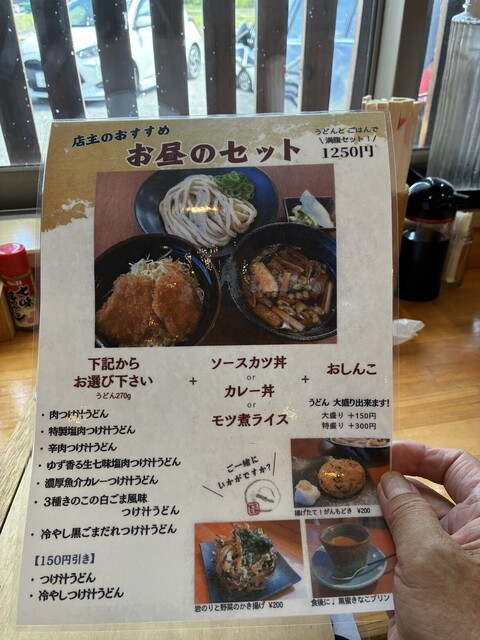 店主のおすすめ
お昼のセット
うどんとごはんで
\満腹セット!/
1250円
下記から
お選び下さい
うどん270g
+
ソースカツ丼
or
カレー丼
or
モツ煮ライス
+
おしんこ
うどん 大盛り出来ます!
大盛り +150円
特盛り +300円
・肉つけ汁うどん
・特製塩肉つけ汁うどん
・辛肉つけ汁うどん
・ゆず香る生七味塩肉つけ汁うどん
・濃厚魚介カレーつけ汁うどん
・3種きのこの白ごま風味
つけ汁うどん
・冷やし黒ごまだれつけ汁うどん
【150円引き】
・つけ汁うどん
・冷やしつけ汁うどん
ご一緒に
いかがですか?
揚げたて!がんもどき ¥200
岩のりと野菜のかき揚げ ¥200
食後に♩黒蜜きなこプリン